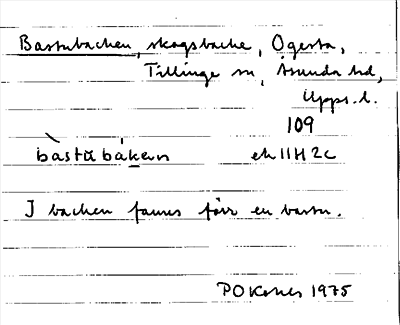 Bastubacken, skogsbacke, Ögesta,
Tillinge sn, Åsunda hd,
Upps. l.
109
bàstŭbákern ek 11H2c
I backen fanns förr en bastu.
1975